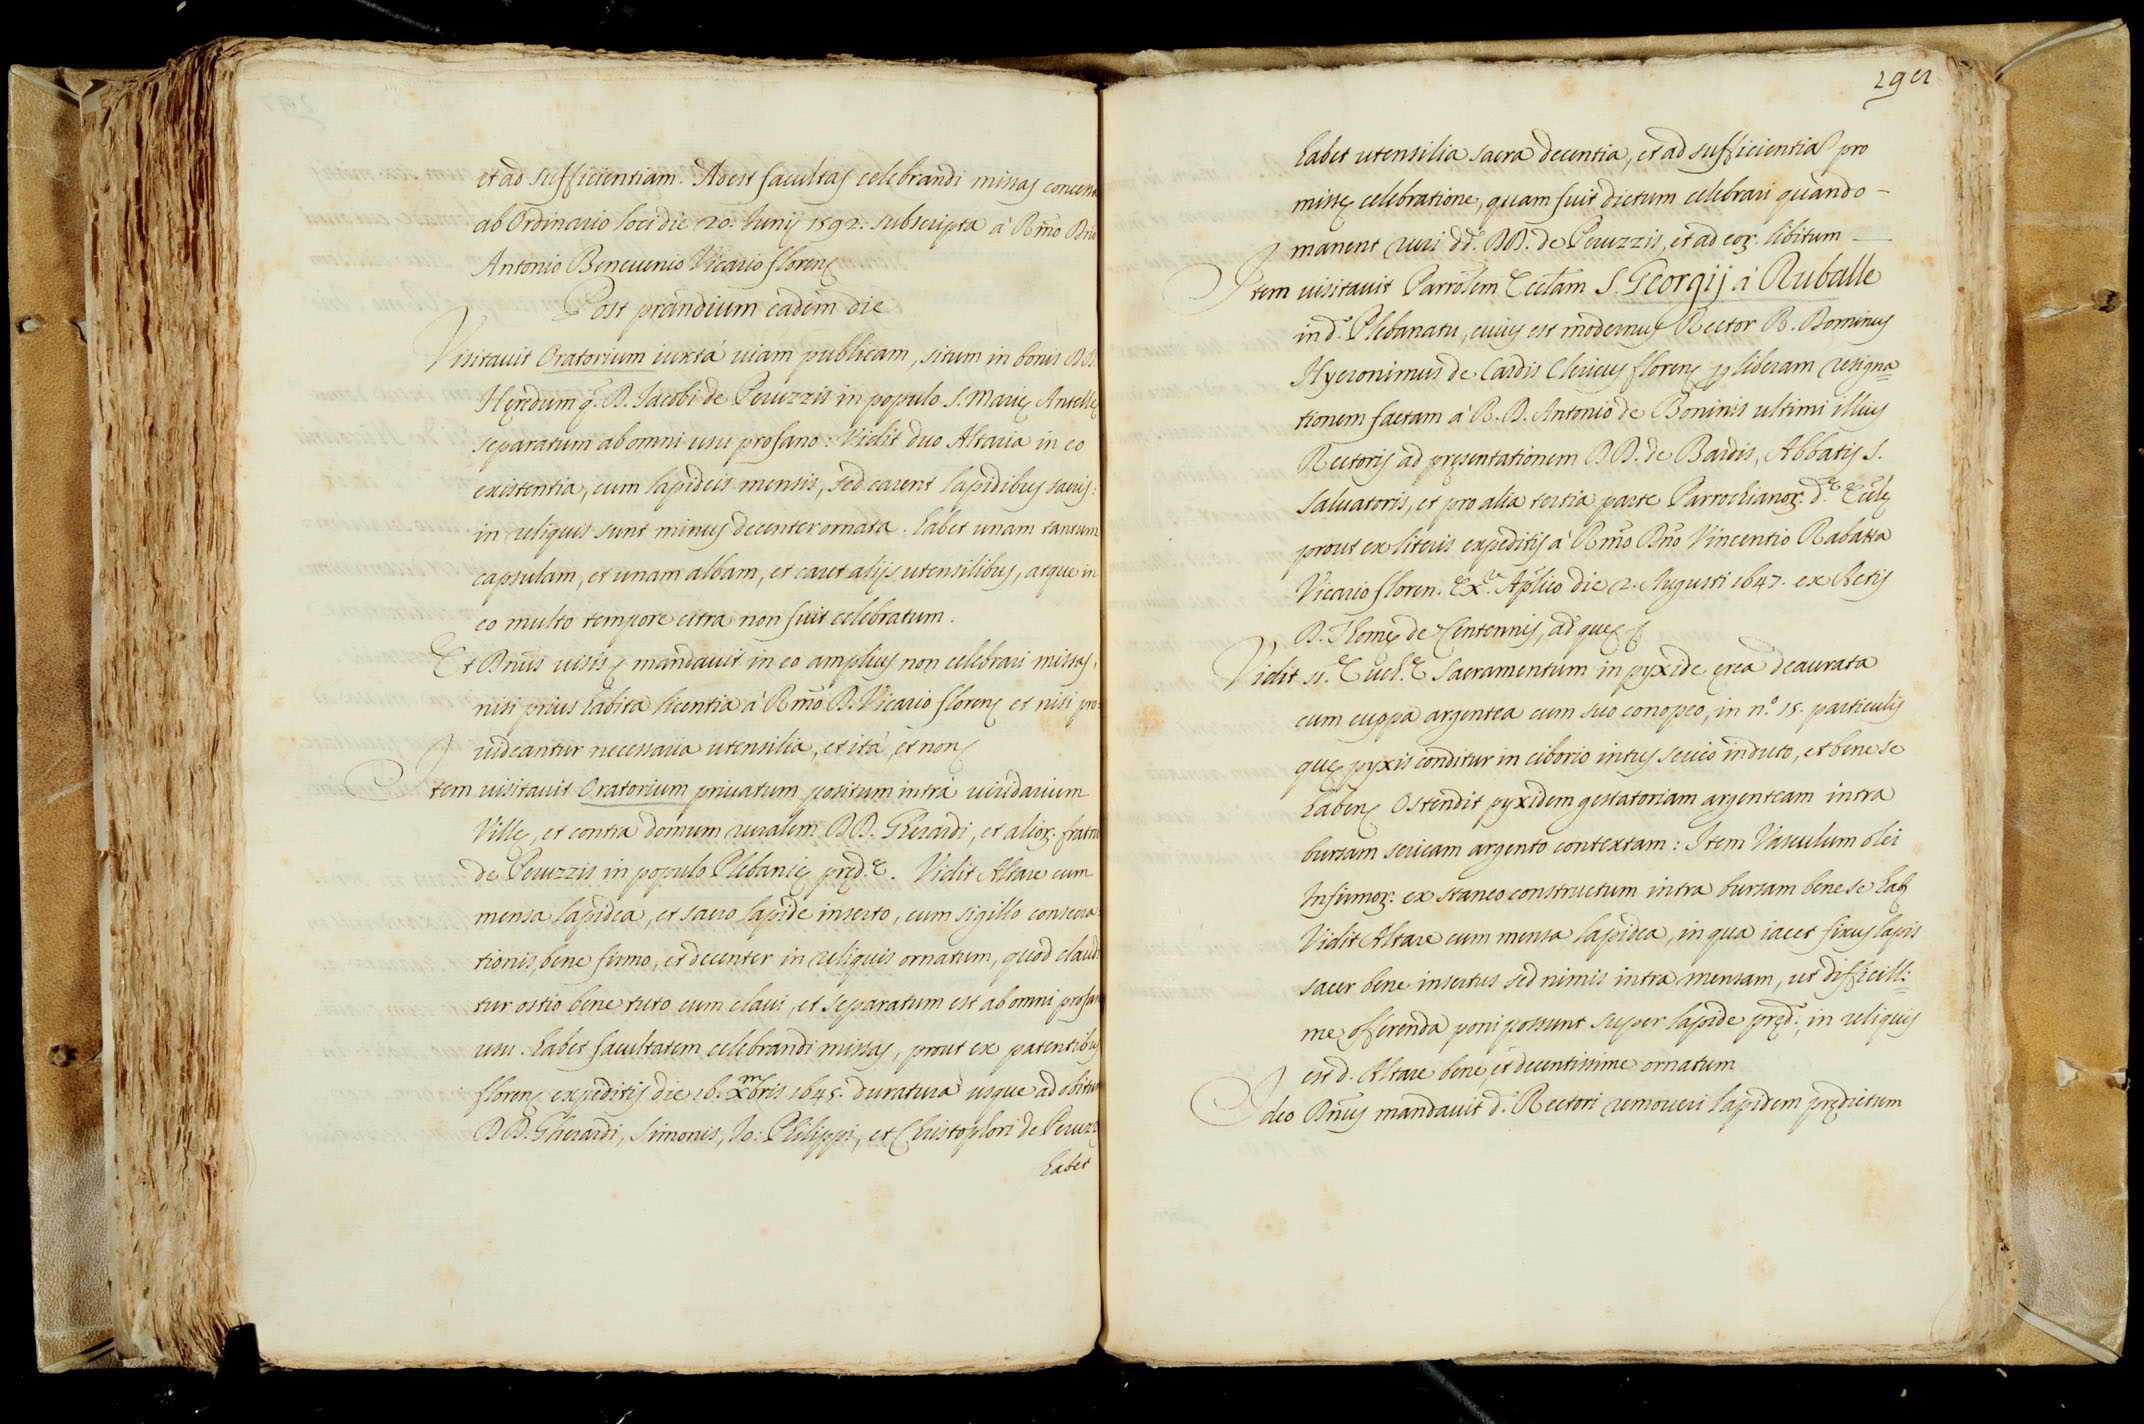 et ad sufficientiam. Adest facultas celebrandi missas concess
ab Ordinario loci die 20. Junij 1592. subscripta à R͞mo D͞no
Antonio Beneuenio Vicario floreñ
Post prandium eadem die
Visitauit Oratorium iuxtà uiam publicam, situm in bonis DD.
Hęredum q. D. Jacobi de Peruzzis in populo S. Marię Antellę
separatum ab omni usu profano: Vidit duo Altaria in eo
existentia, cum lapideis mensis, sed carent lapidibus sacris:
in reliquis sunt minus decenter ornata. habet unam tantum
capsulam, et unam albam, et caret alijs utensilibus, atque in
eo multo tempore citra non fuit celebratum.
Et D͞nus uisis mandauit in eo amplius non celebrari missas,
nisi prius habita licentia à R͞mo D. Vicario floreñ et nisi pro=
uideantur necessaria utensilia, et ità, et non
Item uisitauit Oratorium priuatum positum intrà uiridarium
Villę, et contra domum ruralem DD. Gherardi, et alior. fratru
de Peruzzis in populo Plebanię pręd.ę. Vidit Altare cum
mensa lapidea, et sacro lapide inserto, cum sigillo consecra=
tionis, bene firmo, et decenter in reliquis ornatum, quod claudi
tur ostio bene tuto cum claui, et separatum est ab omni profan
usu. habet facultatem celebrandi missas, prout ex patentibus
floreñ expeditis die 16. Xmbris 1645. duratura usque ad obitum
DD. Gherardi, Simonis, Jo: Philippi, et Christophori de Peruzz
habet
habet utensilia sacra decentia, et ad sufficientiã pro
missę celebratione, quam fuit dictum celebrari quando
manent ruri dd. DD. de Peruzzis, et ad eor. libitum
Item uisitauit Parro͞lem Eccl͞am S. Georgij à Ruballe
in d. Plebanatu, cuius est modernus Rector R. Dominus
Hyeronimus de Cardis Clericus floreñ p liberam resigna=
tionem factam à R. D. Antonio de Boninis ultimi illius
Rectoris ad pręsentationem DD. de Bardis, Abbatis S.
Saluatoris, et pro alia tertia parte Parrochianor. d.ę Eccl͞ę
prout ex literis expeditis à R͞mo D͞no Vincentio Rabatta
Vicario floreñ. Ap͞lico die 2. Augusti 1647. ex Actis
D. Thomę de Centennis, ad quę
Vidit Sacramentum in pyxide ęrea deaurata
cum cuppa argentea cum suo conopeo, in n.º 15. particulis
quę pyxis conditur in ciborio intus serico induto, et bene se
habeñ Ostendit pyxidem gestatoriam argenteam intra
bursam sericam argento contextam: Item Vasculum olei
Infirmor. ex staneo constructum intra bursam bene se hab
Vidit Altare cum mensa lapidea, in qua iacet fixus lapis
sacer bene insertus, sed nimis intra mensam, ut difficilli=
me offerenda poni possunt super lapide pręd., in reliquis
est d. Altare bene, et decentissime ornatum
Ideo D͞nus mandauit d. Rectori remoueri lapidem prędictum